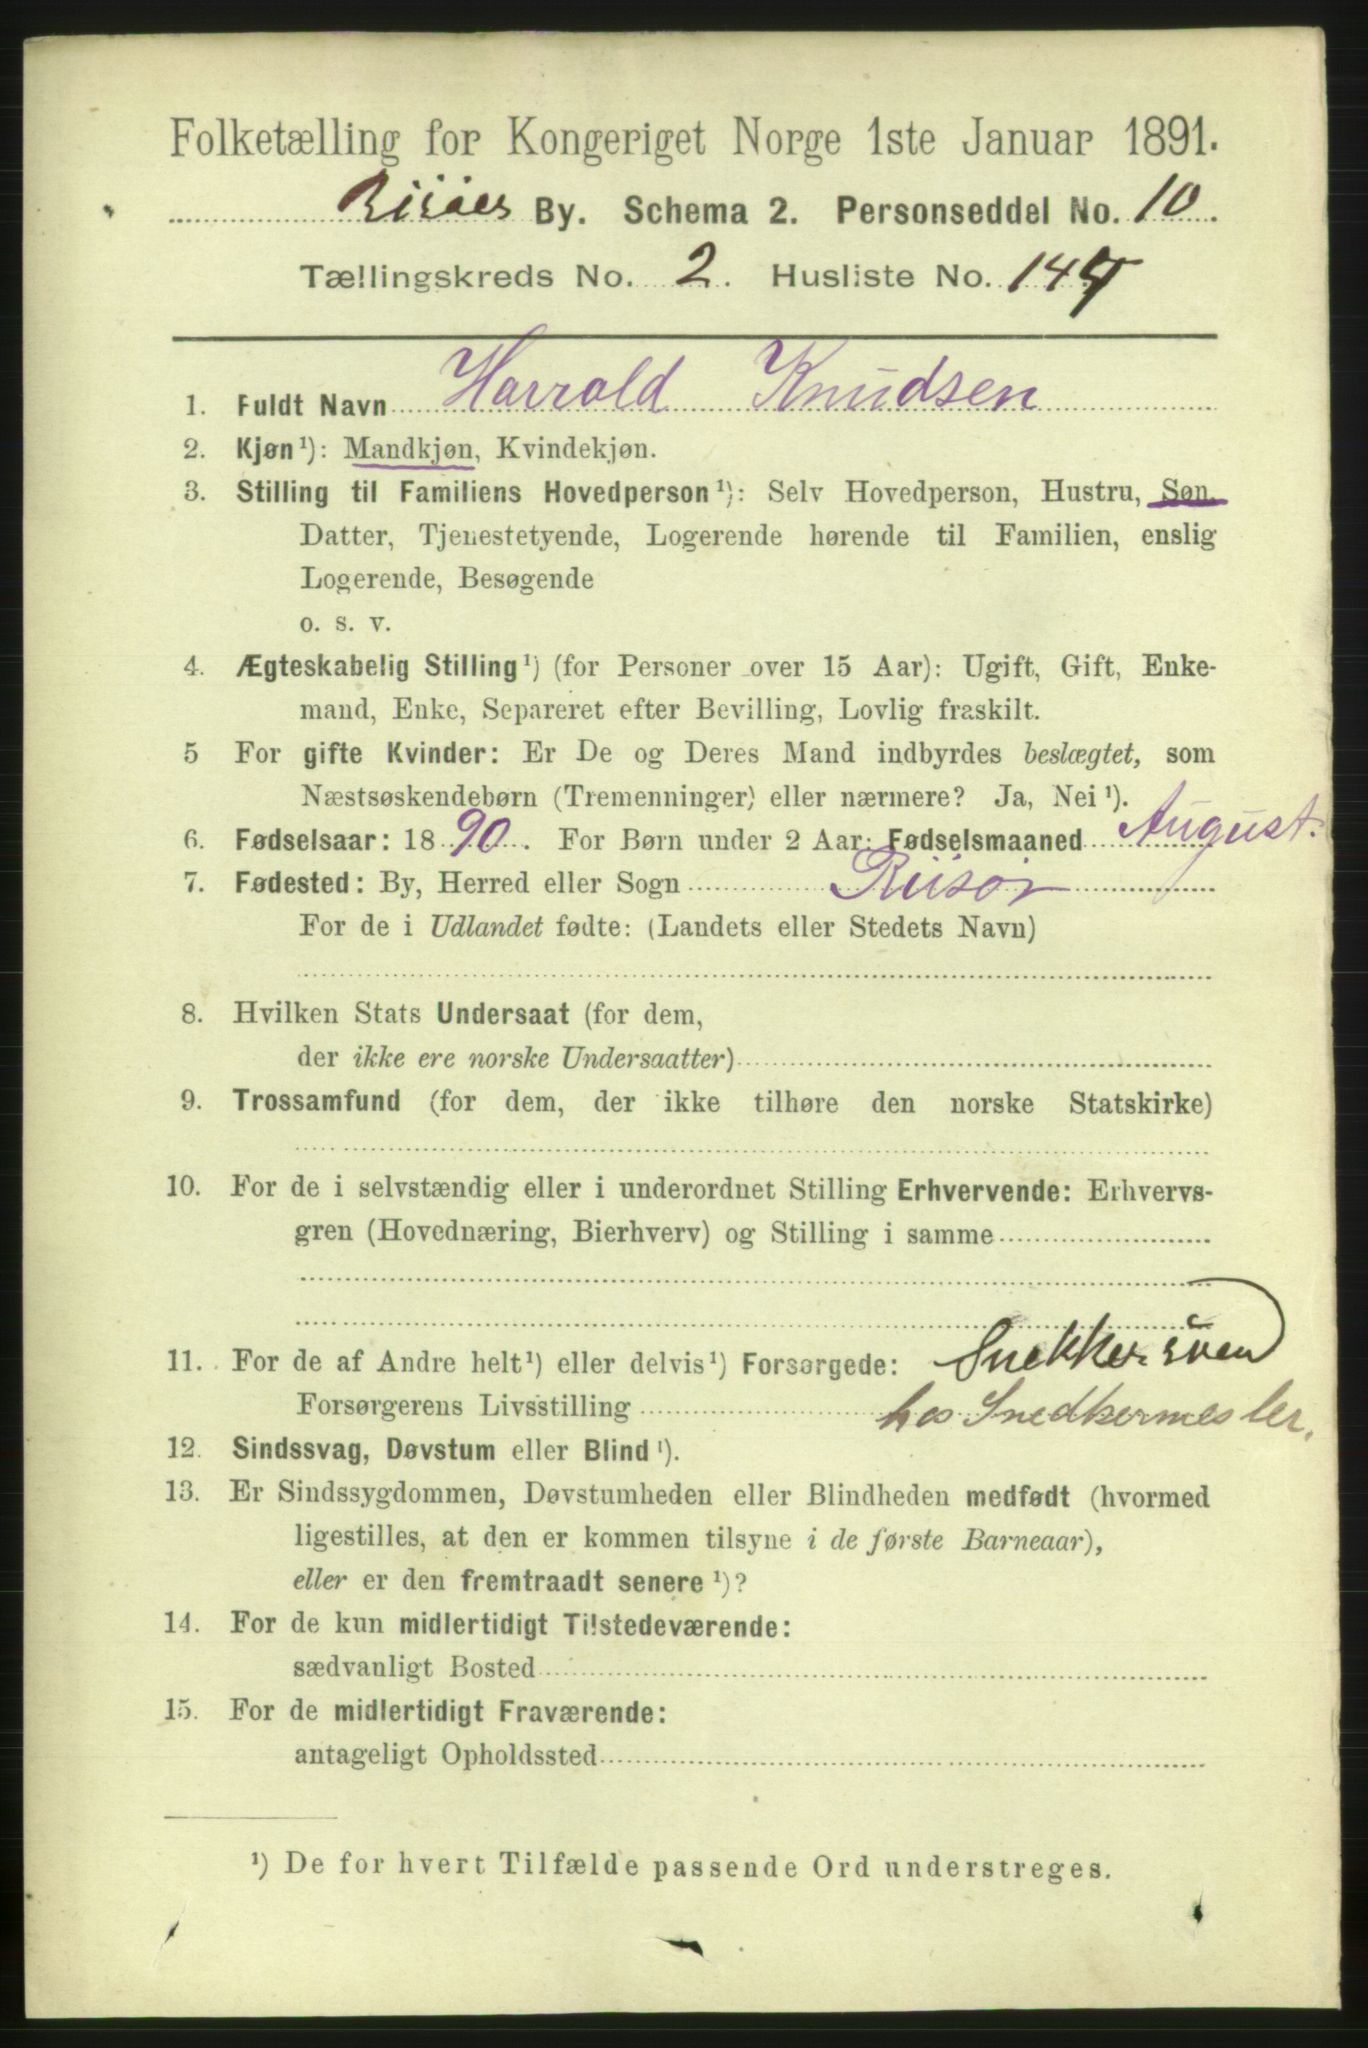 Folketælling for Kongeriget Norge 1ste Januar 1891.
Risøer By. Schema 2. Personseddel No. 10.
Tællingskreds No. 2. Husliste No.
1. Fuldt Navn Harrald Knudsen
2. Kjøn¹): Mandkjøn, Kvindekjøn.
3. Stilling til Familiens Hovedperson¹): Selv Hovedperson, Hustru, Søn,
Datter, Tjenestetyende, Logerende hørende til Familien, enslig
Logerende, Besøgende
o. s. v.
4. Ægteskabelig Stilling¹) (for Personer over 15 Aar): Ugift, Gift, Enke-
mand, Enke, Separeret efter Bevilling, Lovlig fraskilt.
5 For gifte Kvinder: Er De og Deres Mand indbyrdes beslægtet, som
Næstsøskendebørn (Tremenninger) eller nærmere? Ja, Nei¹).
6. Fødselsaar: 1890. For Børn under 2 Aar: Fødselsmaaned August.
7. Fødested: By, Herred eller Sogn Riisør
For de i Udlandet fødte: (Landets eller Stedets Navn)
8. Hvilken Stats Undersaat (for dem,
der ikke ere norske Undersaatter)
9. Trossamfund (for dem, der ikke tilhøre den norske Statskirke)
10. For de i selvstændig eller i underordnet Stilling Erhvervende: Erhvervs-
gren (Hovednæring, Bierhverv) og Stilling i samme
11. For de af Andre helt¹) eller delvis¹) Forsørgede: Snekkersven
Forsørgerens Livsstilling hos Snedkermester.
12. Sindssvag, Døvstum eller Blind¹).
13. Er Sindssygdommen, Døvstumheden eller Blindheden medfødt (hvormed
ligestilles, at den er kommen tilsyne i de første Barneaar),
eller er den fremtraadt senere¹)?
14. For de kun midlertidigt Tilstedeværende:
sædvanligt Bosted
15. For de midlertidigt Fraværende:
antageligt Opholdssted
¹) De for hvert Tilfælde passende Ord understreges.